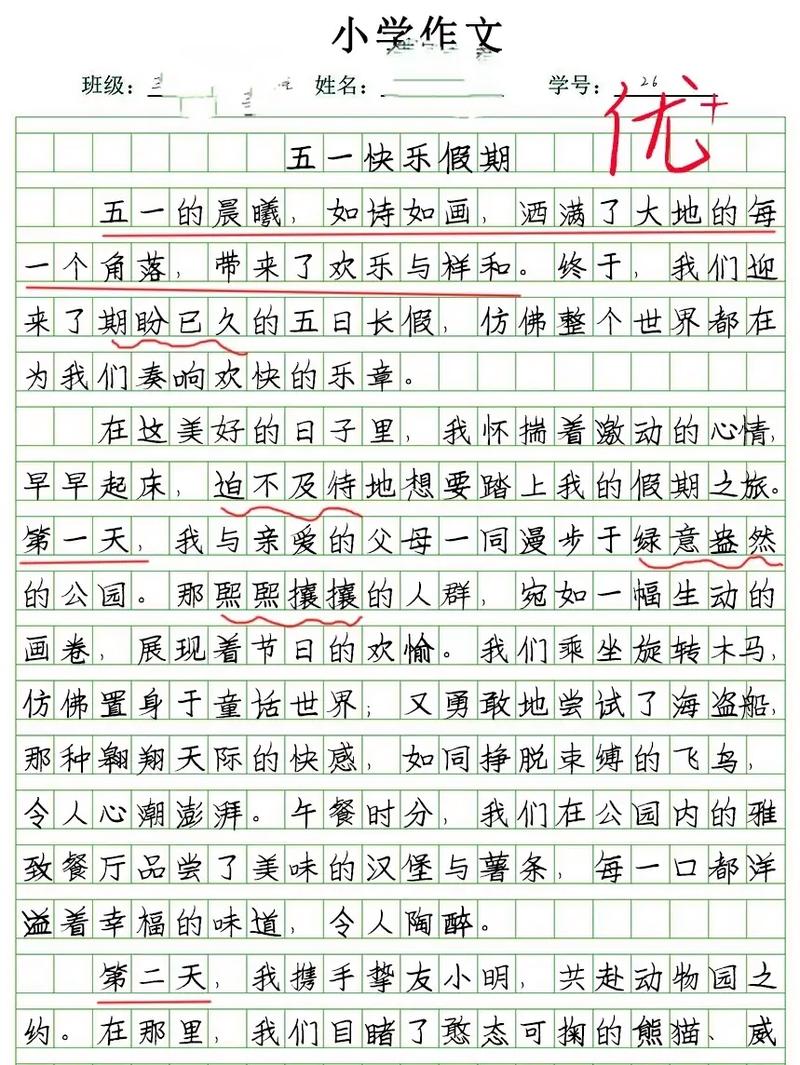 小学作文
班级： 姓名： 学号：26
优+
五一快乐假期
五一的晨曦，如诗如画，洒满了大地的每
一个角落，带来了欢乐与祥和。终于，我们迎
来了期盼已久的五日长假，仿佛整个世界都在
为我们奏响欢快的乐章。
在这美好的日子里，我怀揣着激动的心情，
早早起床，迫不及待地想要踏上我的假期之旅。
第一天，我与亲爱的父母一同漫步于绿意盎然
的公园。那熙熙攘攘的人群，宛如一幅生动的
画卷，展现着节日的欢愉。我们乘坐旋转木马，
仿佛置身于童话世界；又勇敢地尝试了海盗船，
那种翱翔天际的快感，如同挣脱束缚的飞鸟，
令人心潮澎湃。午餐时分，我们在公园内的雅
致餐厅品尝了美味的汉堡与薯条，每一口都洋
溢着幸福的味道，令人陶醉。
第二天，我携手挚友小明，共赴动物园之
约。在那里，我们目睹了憨态可掬的熊猫、威